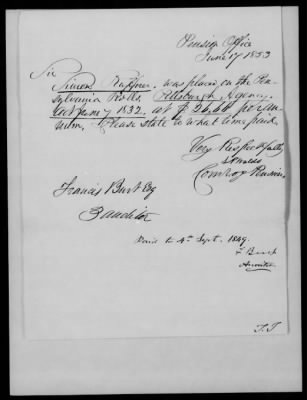 Pension Office
June 17 1853
Sir
Simon Ruffner, was placed on the Pen-
sylvania Rolls, Pittsburgh, Agency,
June 7 1832, at $26.68 per an-
num, Please state to what time paid.
Very Respectfully
Comr of Pensions
Francis Burt Esq
3 Auditor
Paid to 4th Sept. 1849.
F Burt
Auditor